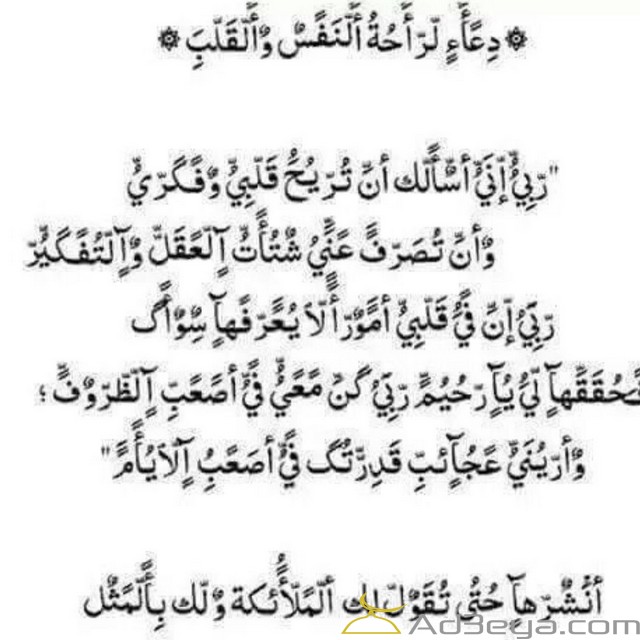 ۞ دعاء لراحة النفس والقلب ۞
"ربي إني أسألك أن تريح قلبي وفكري
وأن تصرف عني شتات العقل والتفكير
ربي إن في قلبي أمورا لا يعرفها سواك
فحققها لي يا رحيم ربي كن معي في أصعب الظروف ؛
وأريني عجائب قدرتك في أصعب الأيام"
أنشرها حتى تقول لك الملائكة ولك بالمثل
Ad3eya.com